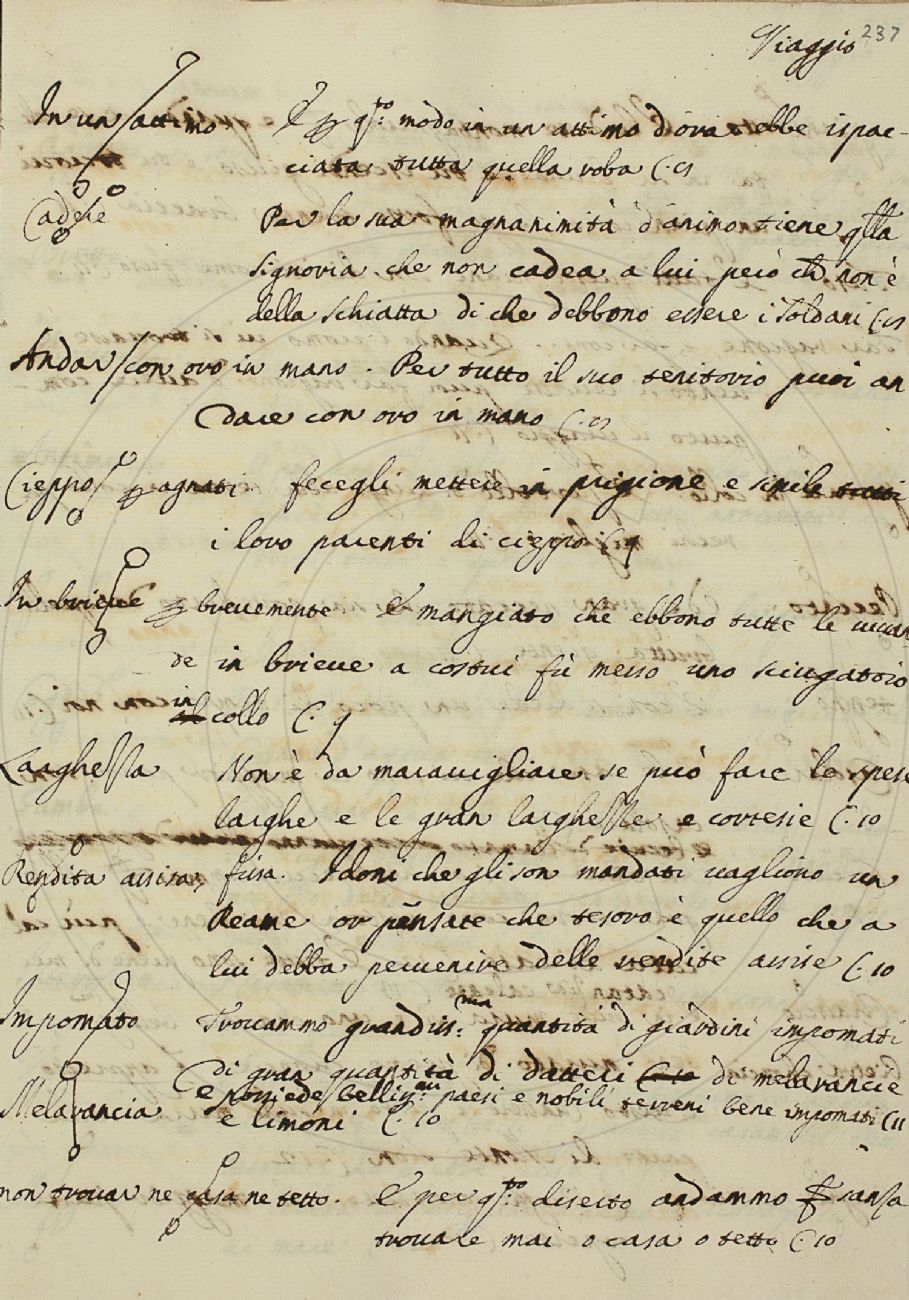 Viaggio 237
In un attimo E p qsto modo in un attimo d'ora ebbe ispac-
ciata tutta quella roba C. 
Cadere Per la sua magnanimità d'animo tiene qlla
Signoria che non cadea a lui però ch non è
della schiatta di che debbono essere i Soldani C.
Andar con ovo in mano. Per tutto il suo teritorio puoi an
dare con ovo in mano C.
Cieppo p agnati fecegli mettere in prigione e simile tutti
i loro parenti di cieppo C. 9
In brieve p brevemente E mangiato che ebbono tutte le vivan
de in brieve a costui fù messo uno sciugatoio
in
al collo C. 9
Larghessa Non è da maravigliare se può fare le spese
larghe e le gran larghesse e cortesie C. 10
Rendita assisa, fissa. I doni che gli son mandati vagliono un
Reame or pensate che tesoro è quello che a
lui debba pervenire delle rendite assise C. 10
Impomato Trovammo grandiss.ma quantità di giardini impomati
di gran quantità di datteri C 10 di melarancie
e possiede bellissmi paesi e nobili terreni bene impomati C 11
Melarancia e limoni C. 10
non trovar ne casa ne tetto. E per qsto diserto andammo sansa
trovare mai o casa o tetto C. 10